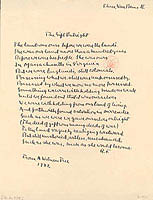 The Gift Outright
The land was ours before we were the land's.
She was our land more than a hundred years
Before we were her people. She was ours
In Massachusetts in Virginia
But we were England's, still colonials,
Possessing what we still were unpossessed by,
Possessed by what we now no more possessed.
Something we were withholding made us weak
Until we found out that it was ourselves
We were withholding from our land of living
And forthwith found salvation in surrender.
Such as we were we gave ourselves outright
(The deed of gift was many deeds of war)
To the land vaguely realizing westward,
But still unstoried, artless, unenhanced,
Such as she was, such as she would become.
R.F.
From A Witness Tree
1942